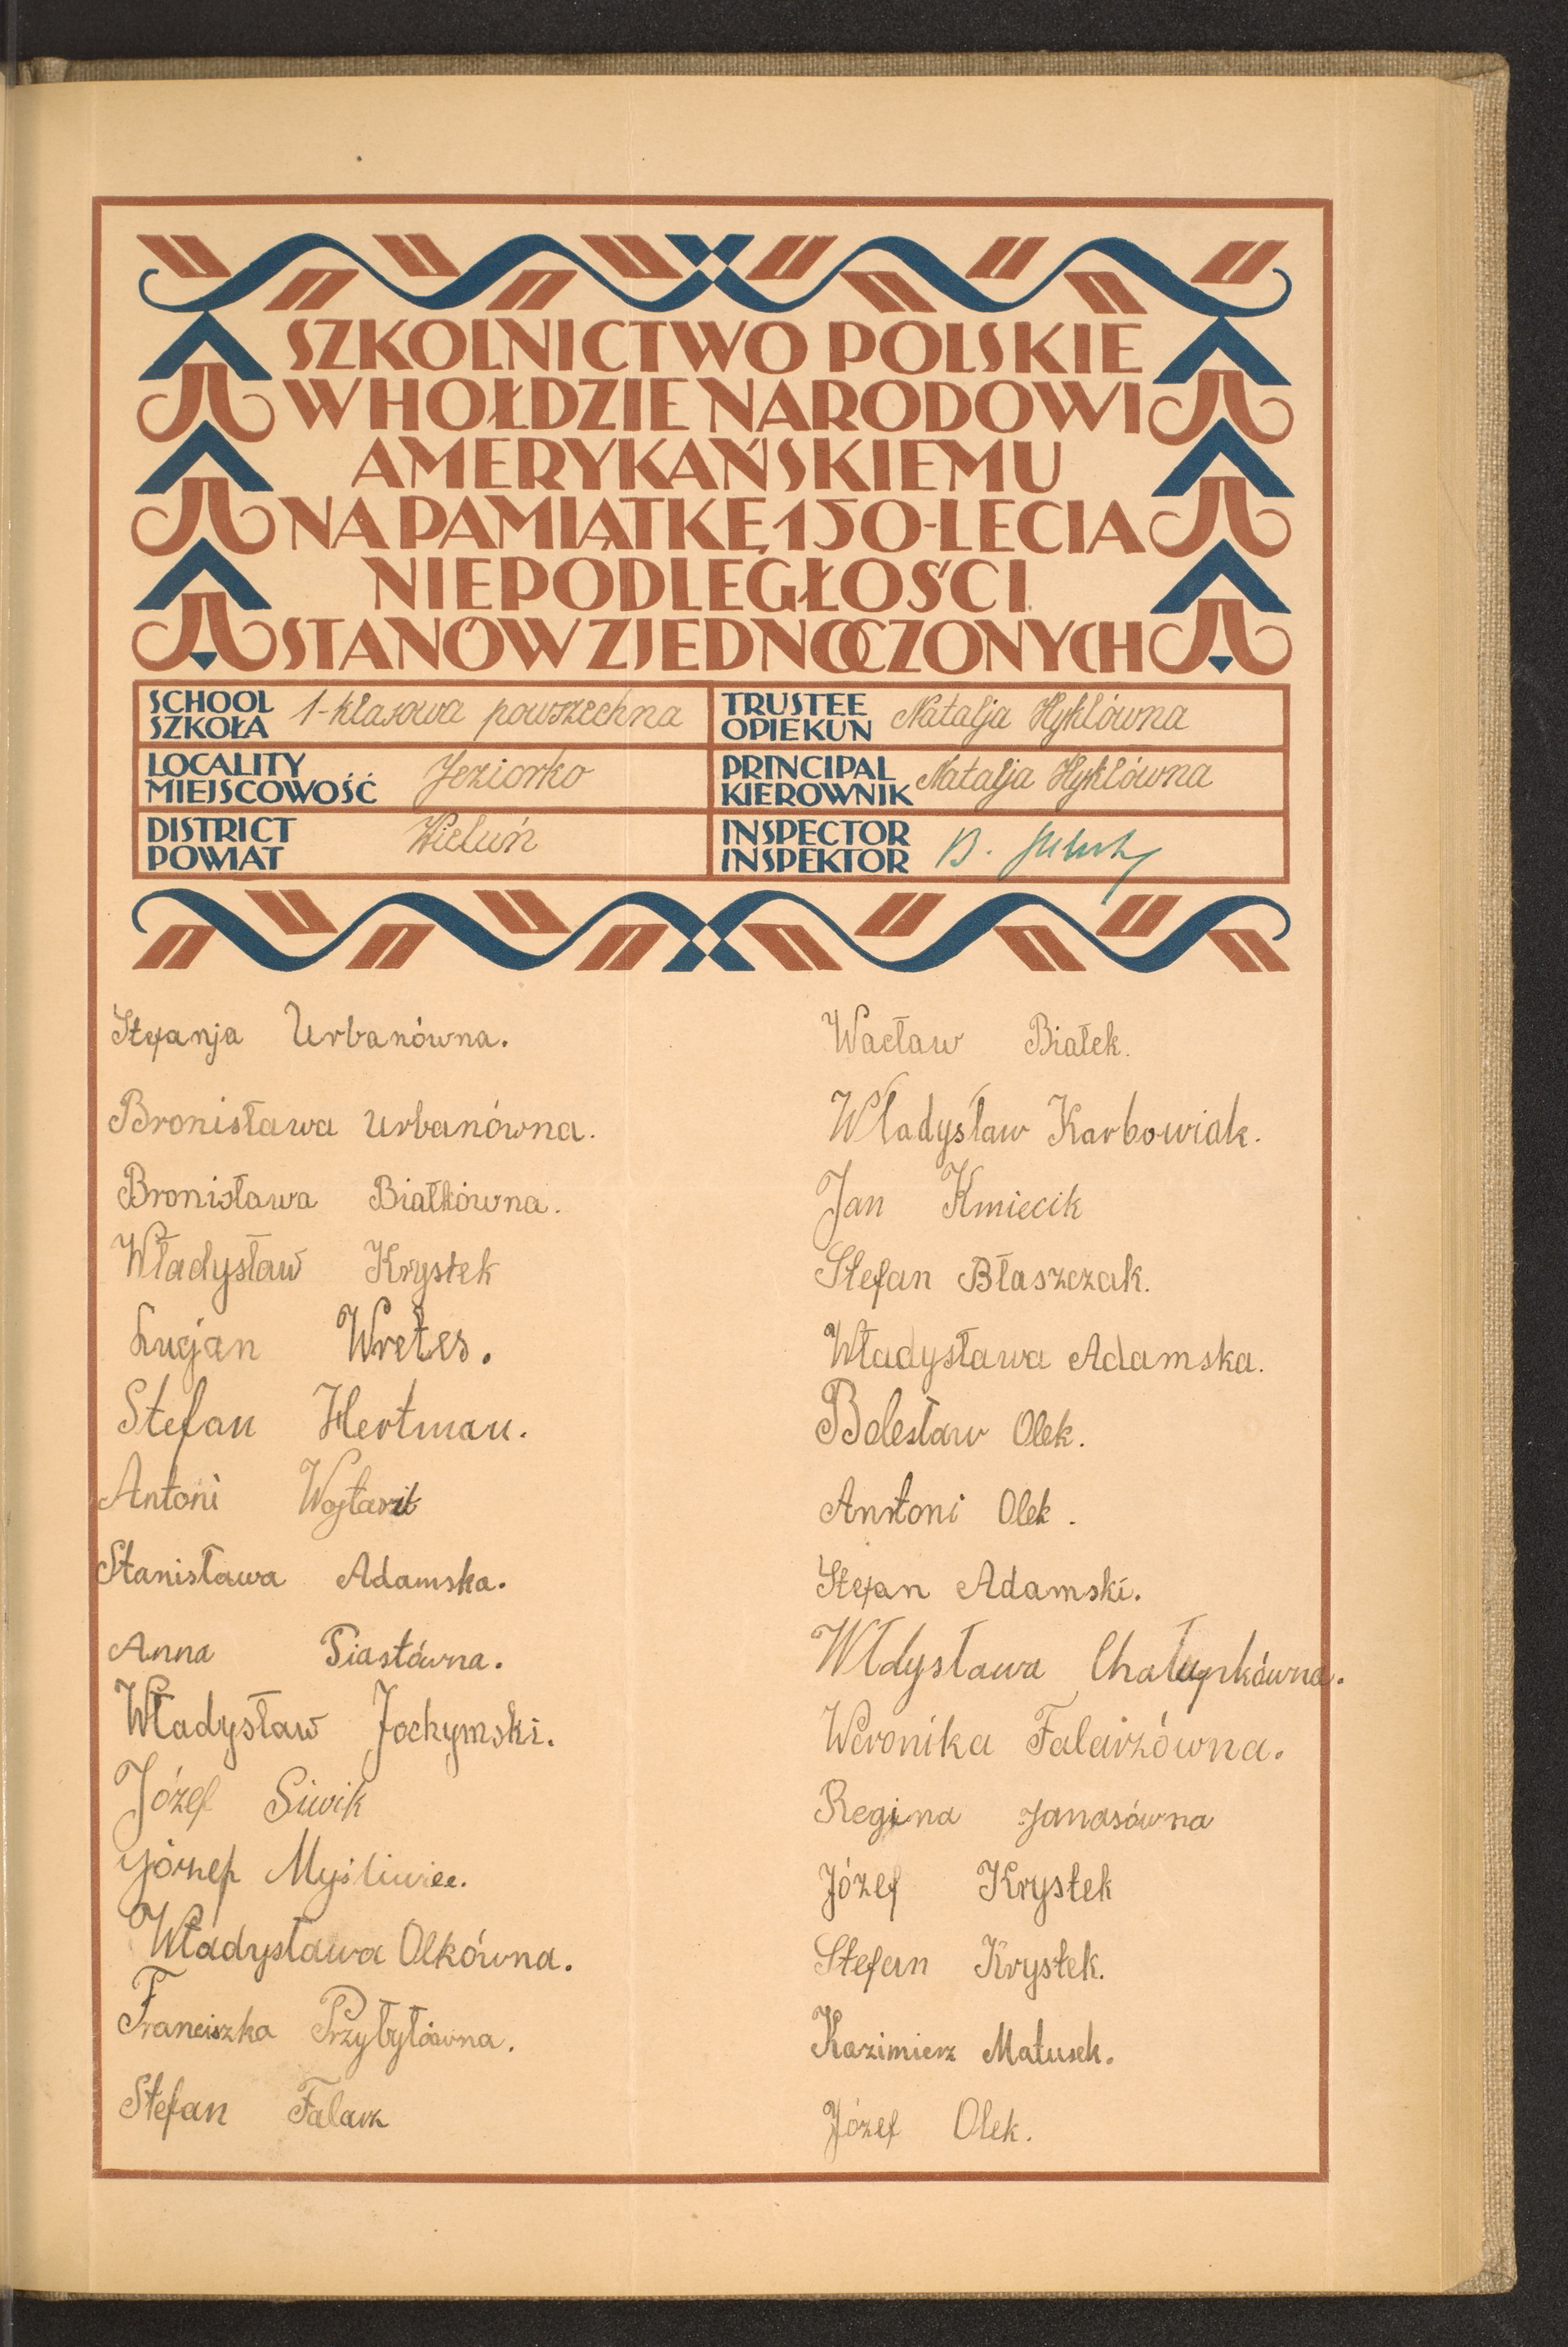 SZKOLNICTWO POLSKIE
W HOŁDZIE NARODOWI
AMERYKAŃSKIEMU
NA PAMIĄTKĘ 150-LECIA
NIEPODLEGŁOŚCI
STANÓW ZJEDNOCZONYCH
SCHOOL
SZKOŁA 1-klasowa powszechna
TRUSTEE
OPIEKUN Natalja Hyklówna
LOCALITY
MIEJSCOWOŚĆ Jeziorko
PRINCIPAL
KIEROWNIK Natalja Hyklówna
DISTRICT
POWIAT Wieluń
INSPECTOR
INSPEKTOR B.
Stefanja Urbanówna.
Bronisława Urbanówna.
Bronisława Białkówna.
Władysław Krystek
Lucjan Wretes.
Stefan Hertman.
Antoni
Stanisława Adamska.
Anna Piastówna.
Władysław Jochymski.
Józef Siwik
Józef Myśliwiec.
Władysława Olkówna.
Franciszka Przybyłówna.
Stefan Falarz
Wacław Białek.
Władysław Karbowiak.
Jan Kmiecik
Stefan Błaszczak.
Władysława Adamska.
Bolesław Olek.
Antoni Olek.
Stefan Adamski.
Włdysława Chałupkówna.
Weronika Falarzówna.
Regina Janasówna
Józef Krystek
Stefan Krystek.
Kazimierz Matusek.
Józef Olek.